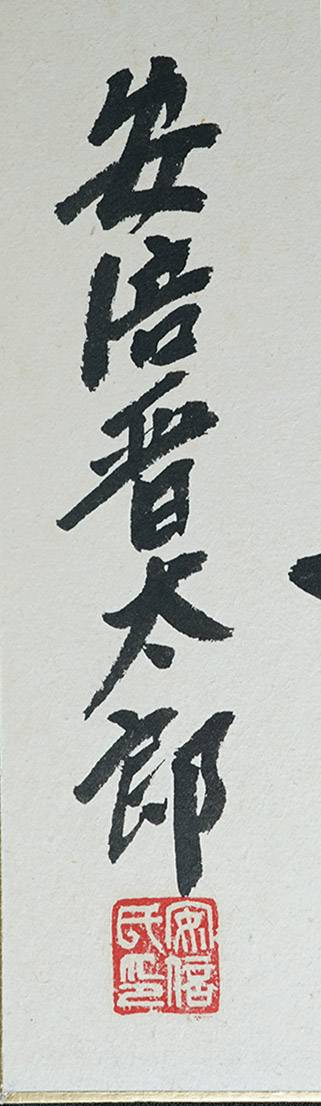 安倍晋太郎
安倍
氏印